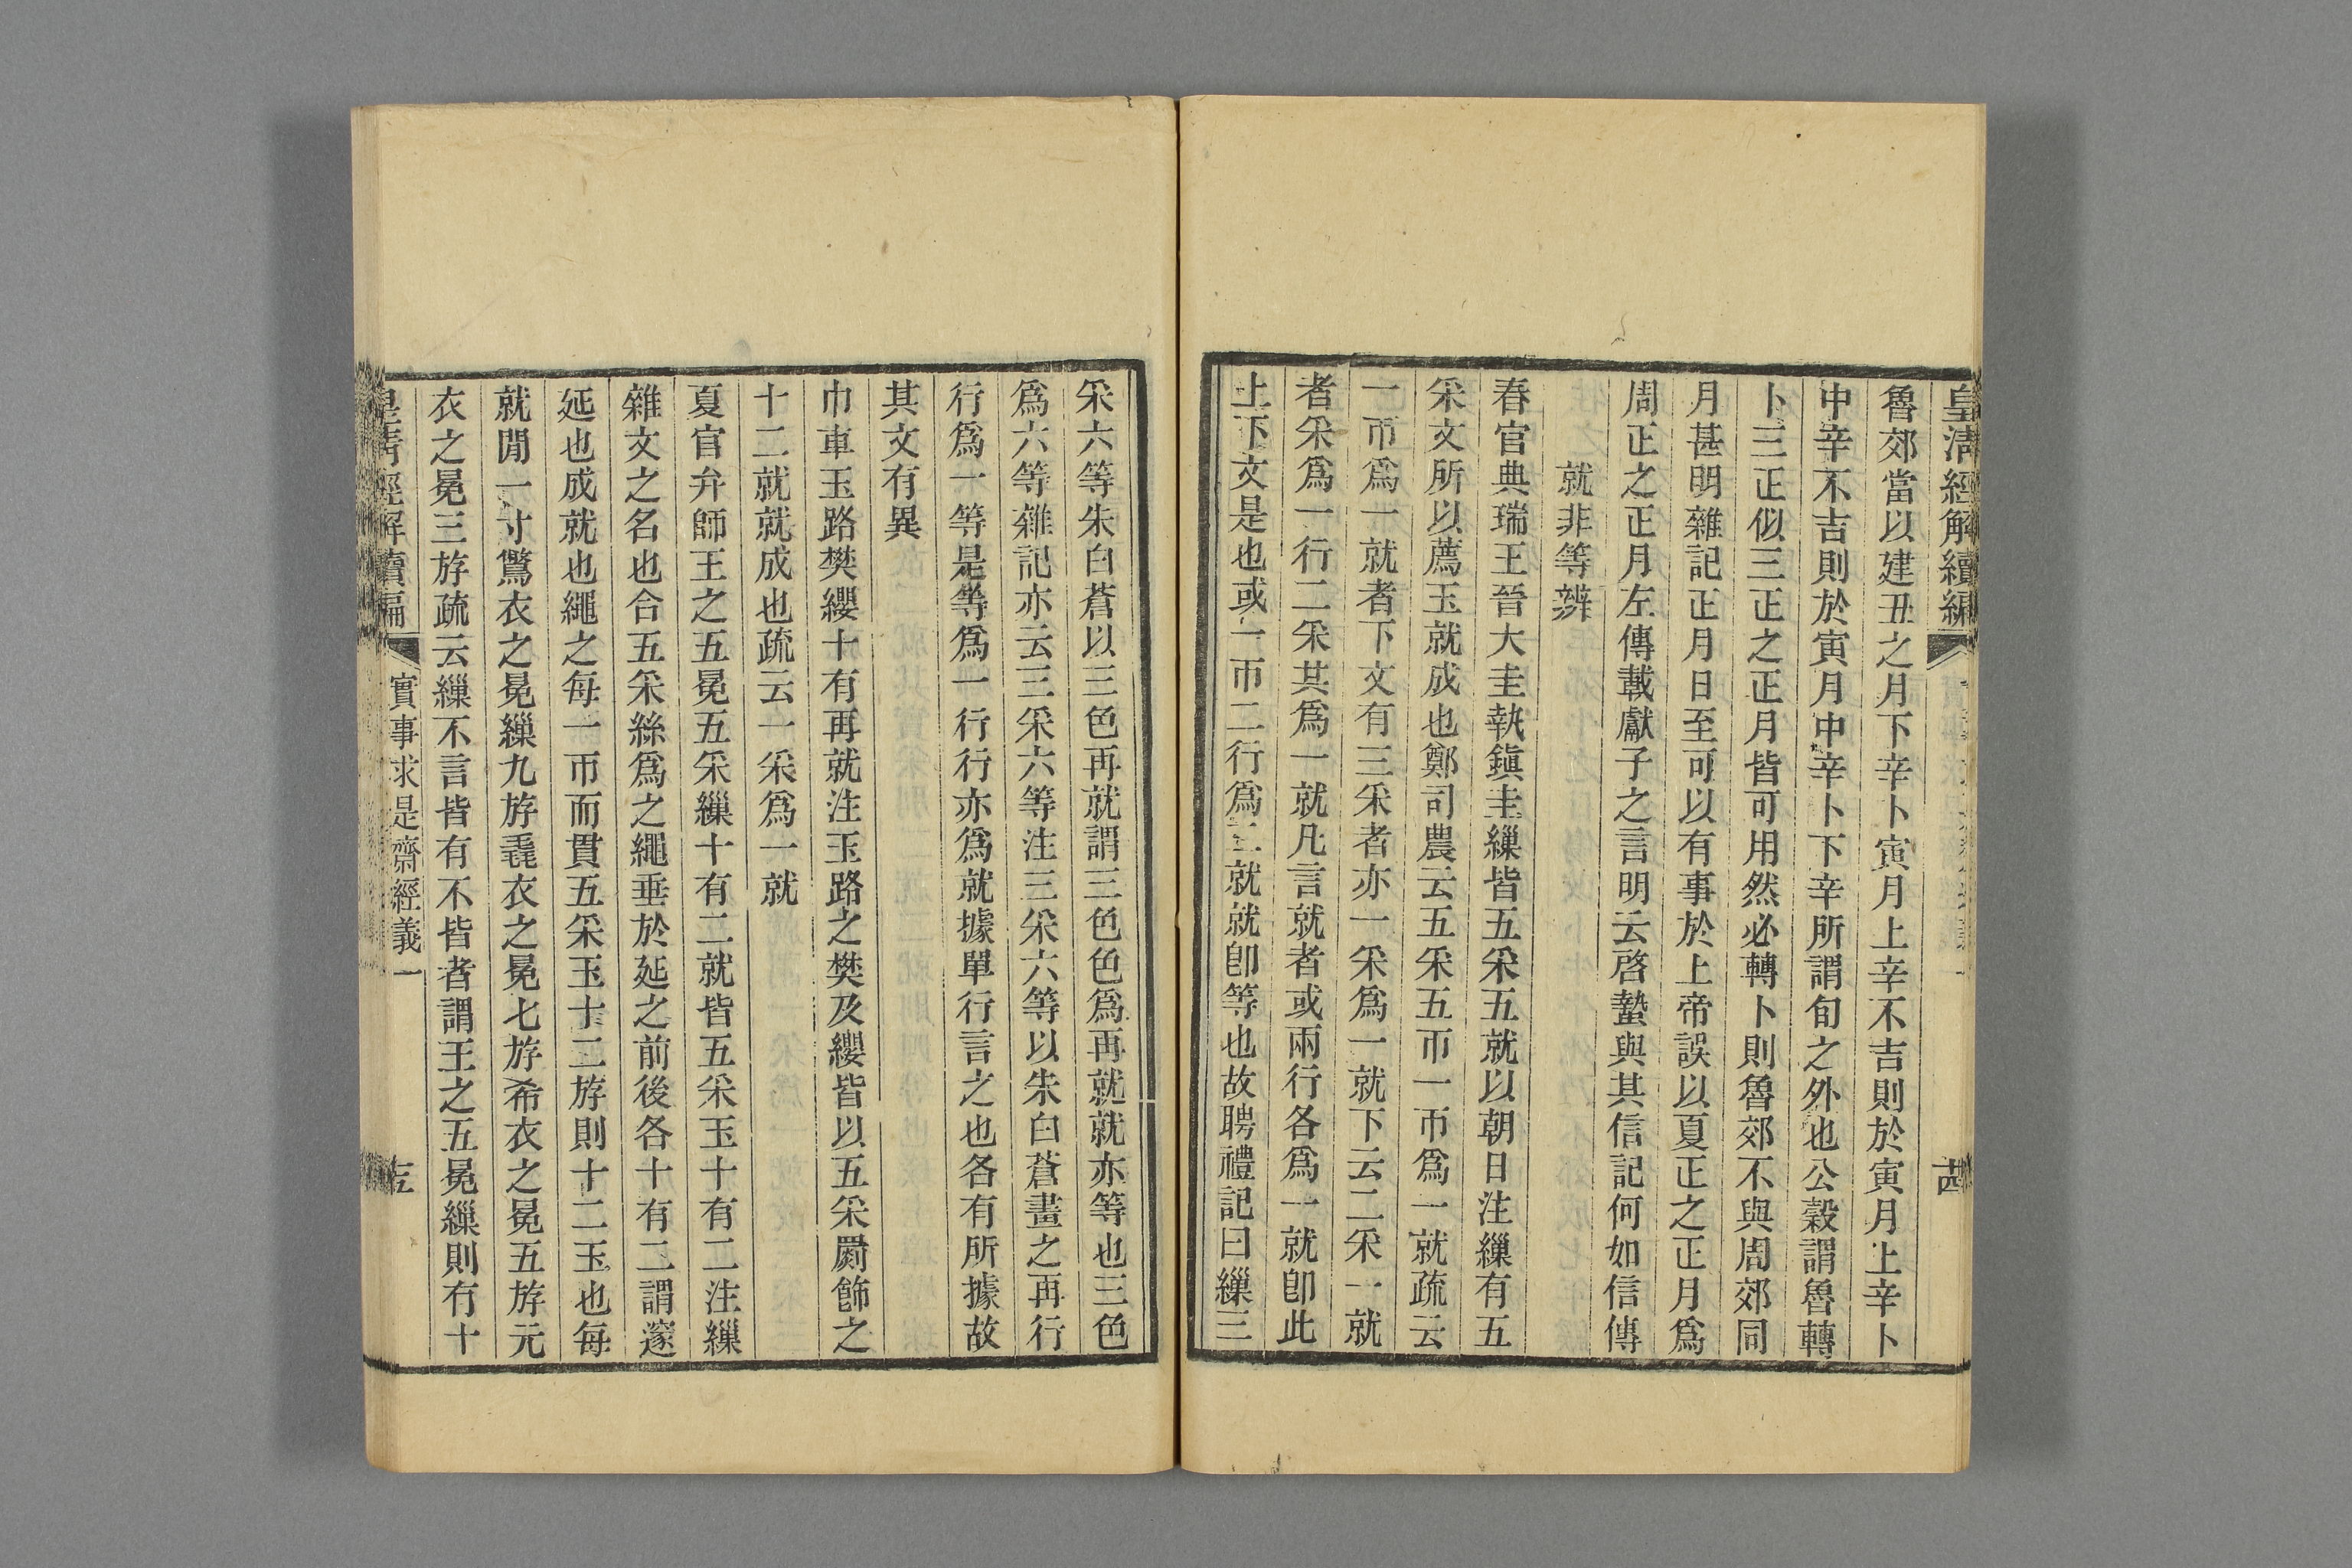 皇清經解續編
魯郊當以建丑之月下辛卜寅月上辛不吉則於寅月上辛卜
中辛不吉則於寅月中辛卜下辛所謂旬之外也公穀謂魯轉
卜三正似三正之正月皆可用然必轉卜則魯郊不與周郊同
月甚明雜記正月日至可以有事於上帝誤以夏正之正月爲
周正之正月左傳載獻子之言明云啓蟄與其信記何如信傳
就非等辨
春官典瑞王晉大圭執鎭圭繅皆五采五就以朝日注繅有五
采文所以薦玉就成也鄭司農云五采五帀一帀爲一就疏云
一帀爲一就者下文有三采者亦一采爲一就下云二采一就
者采爲一行二采其爲一就凡言就者或兩行各爲一就卽此
上下文是也或一帀二行爲二就就卽等也故聘禮記曰繅三
采六等朱白蒼以三色再就謂三色色爲再就就亦等也三色
爲六等雜記亦云三采六等注三采六等以朱白蒼畫之再行
行爲一等是等爲一行行亦爲就據單行言之也各有所據故
其文有異
巾車玉路樊纓十有再就注玉路之樊及纓皆以五采罽飾之
十二就就成也疏云一采爲一就
夏官弁師王之五冕五采繅十有二就皆五采玉十有二注繅
雜文之名也合五采絲爲之繩垂於延之前後各十有二謂邃
延也成就也繩之每一帀而貫五采玉十二斿則十二玉也每
就閒一寸鷩衣之冕繅九斿毳衣之冕七斿希衣之冕五斿元
衣之冕三斿疏云繅不言皆有不皆者謂王之五冕繅則有十
皇淸經解續編
實事求是齋經義一